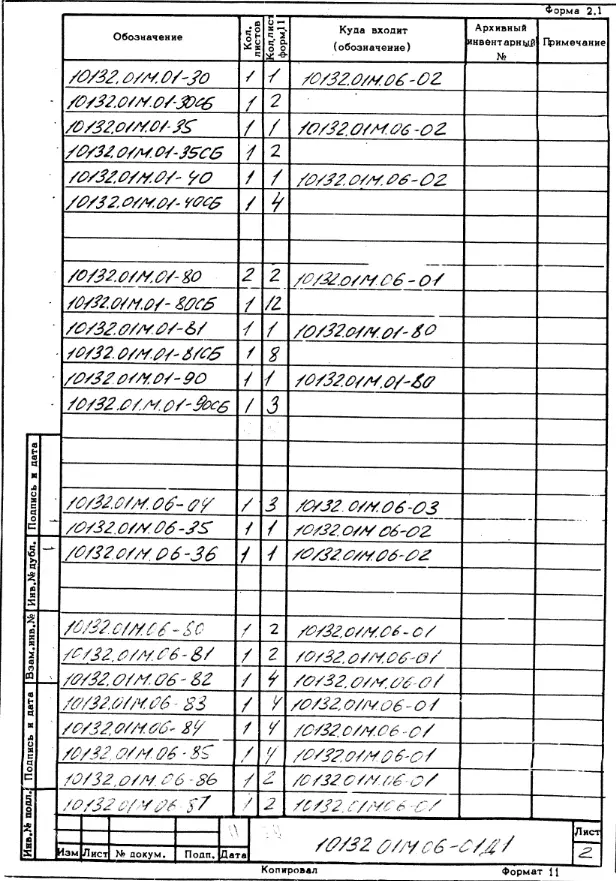 Форма 2.1
Обозначение Кол. листов Кол.лист форм.11 Куда входит (обозначение) Архивный инвентарный № Примечание
10132.01М.01-30 1 1 10132.01М.06-02
10132.01М.01-30СБ 1 2
10132.01М.01-35 1 1 10132.01М.06-02
10132.01М.01-35СБ 1 2
10132.01М.01-40 1 1 10132.01М.06-02
10132.01М.01-40СБ 1 4
10132.01М.01-80 2 2 10132.01М.06-01
10132.01М.01-80СБ 1 12
10132.01М.01-81 1 1 10132.01М.01-80
10132.01М.01-81СБ 1 8
10132.01М.01-90 1 1 10132.01М.01-80
10132.01.М.01-90СБ 1 3
10132.01М.06-04 1 3 10132.01М.06-03
10132.01М.06-35 1 1 10132.01М 06-02
10132.01М.06-36 1 1 10132.01М.06-02
10132.01М.06-80 1 2 10132.01М.06-01
10132.01М.06-81 1 2 10132.01М.06-01
10132.01М.06-82 1 4 10132.01М.06-01
10132.01М.06-83 1 4 10132.01М06-01
10132.01М.06-84 1 4 10132.01М.06-01
10132.01М.06-85 1 4 10132.01М.06-01
10132.01М.06-86 1 2 10132.01М.06-01
10132.01М.06-87 1 2 10132.01М06-01
Инв.№ подл. Подпись и дата Взам.инв.№ Инв.№ дубл. Подпись и дата
Изм Лист № докум. Подп. Дата
10132.01М 06-01Д1
Лист
2
Копировал Формат 11